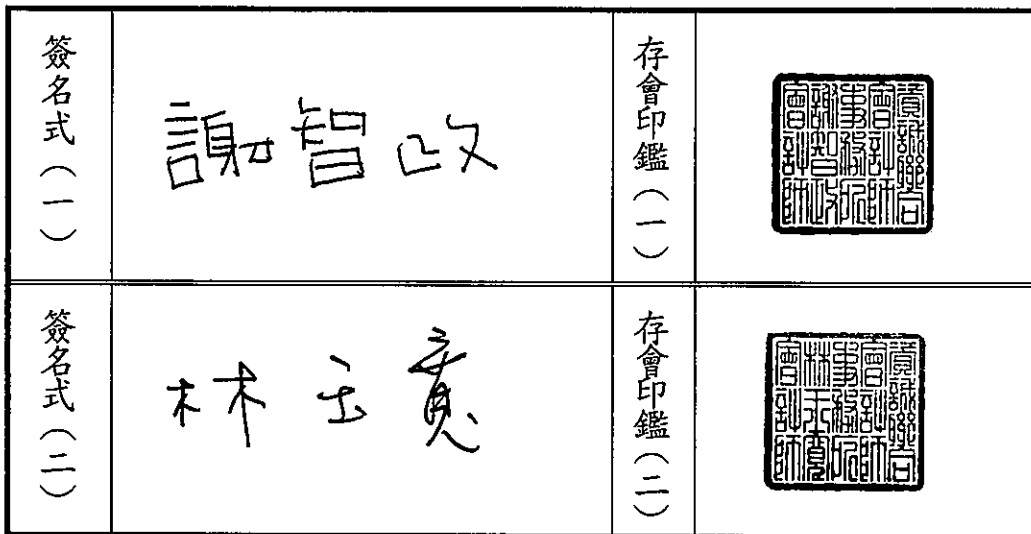 簽名式（一）
謝智政
存會印鑑（一）
資誠聯合
會計師
事務所
謝智政
會計師
簽名式（二）
林玉寬
存會印鑑（二）
資誠聯合
會計師
事務所
林玉寬
會計師